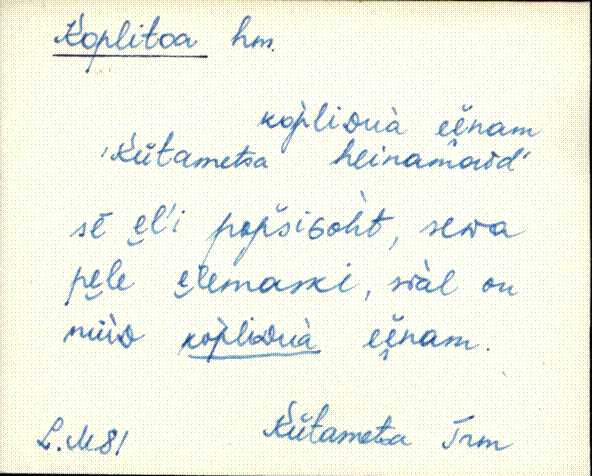 Koplitoa hm.
kopliᴅuà eënam
'Kütametsa heinamaad'
sē el'i popsiɢoht, seᴅa
pele elemaski, sääl on
nüüᴅ kòpliᴅuà eënam.
L.M 81 Kütametsa Trm